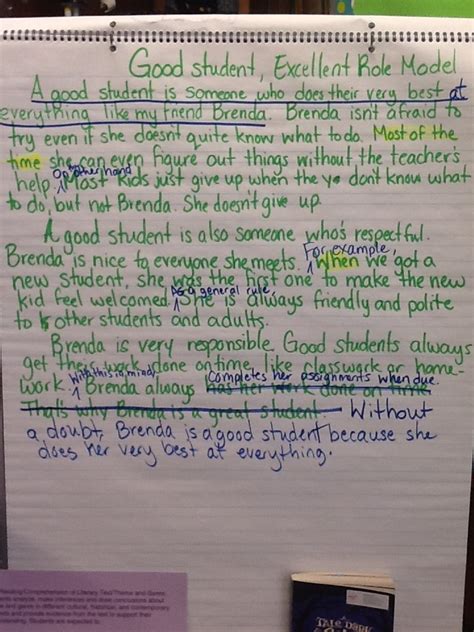 Good student, Excellent Role Model
A good student is someone who does their very best at
everything like my friend Brenda. Brenda isn't afraid to
try even if she doesn't quite know what to do. Most of the
time she can even figure out things without the teacher's
On other hand
help. ^ Most kids just give up when the yo don't know what
to do, but not Brenda. She doesn't give up.
A good student is also someone who's respectful.
For example,
Brenda is nice to everyone she meets. ^ When we got a
new student, she was the first one to make the new
As a general rule,
kid feel welcomed. ^ She is always friendly and polite
to other students and adults.
Brenda is very responsible. Good students always
get their work done on time, like classwork or home-
With this in mind, completes her assignments when due.
work. ^ Brenda always has her work done on time
That's why Brenda is a great student Without
a doubt, Brenda is a good student because she
does her very best at everything.
Reading/Comprehension of Literary Text/Theme and Genre.
analyze, make inferences and draw conclusions about
and genre in different cultural, historical, and contemporary
and provide evidence from the text to support their
understanding. Students are expected to:
A
TALE DARK